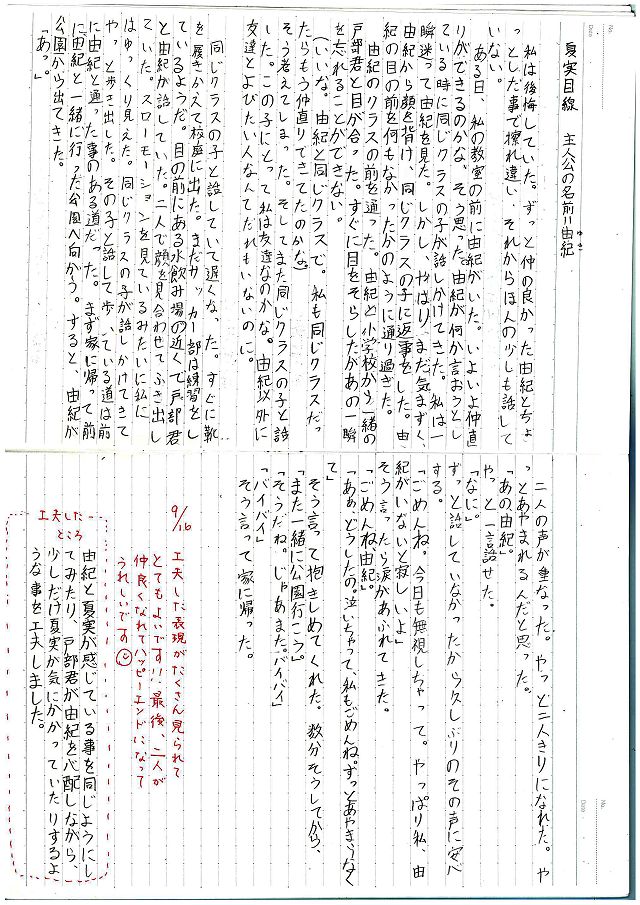 夏実目線　主人公の名前=由紀
ゆき
私は後悔していた。ずっと仲の良かった由紀とちょ
っとした事で擦れ違い、それからほんの少しも話して
いない。
ある日、私の教室の前に由紀がいた。いよいよ仲直
りができるのかな、そう思った。由紀が何か言おうとし
ている時に同じクラスの子が話しかけてきた。私は一
瞬迷って由紀を見た。しかし、やはり、まだ気まずく、
由紀から顔を背け、同じクラスの子に返事をした。由
紀の目の前を何もなかったかのように通り過ぎた。
由紀のクラスの前を通った。由紀と小学校から一緒の
戸部君と目が合った。すぐに目をそらしたがあの一瞬
を忘れることができない。
(いいな。由紀と同じクラスで。私も同じクラスだっ
たらもう仲直りできてたのかな)
そう考えてしまった。そしてまた同じクラスの子と話
した。この子にとって私は友達なのかな。由紀以外に
友達とよびたい人なんてだれもいないのに。
同じクラスの子と話していて遅くなった。すぐに靴
を履きかえて校庭に出た。まだサッカー部は練習をし
ているようだ。目の前にある水飲み場の近くで戸部君
と由紀が話していた。二人で顔を見合わせてふき出し
ていた。スローモーションを見ているみたいに私に
はゆっくり見えた。同じクラスの子が話しかけてきて
やっと歩き出した。その子と話して歩いている道は前
に由紀と通った事のある道だった。まず家に帰って前
に由紀と一緒に行った公園へ向かう。すると、由紀が
公園から出てきた。
「あっ。」
二人の声が重なった。やっと二人きりになれた。や
っとあやまれるんだと思った。
「あの、由紀」
やっと一言話せた。
「なに」
ずっと話していなかったから久しぶりのその声に安心
する。
「ごめんね。今日も無視しちゃって。やっぱり私、由
紀がいないと寂しいよ」
そう言ったら涙があふれてきた。
「ごめんね、由紀」
「あぁ、どうしたの。泣いちゃって、私もごめんね。ずっとあやまらなく
て」
そう言って抱きしめてくれた。数分そうしてから、
「また一緒に公園行こう」
「そうだね。じゃあまた。バイバイ」
「バイバイ」
そう言って家に帰った。
9/16
工夫した表現がたくさん見られて
とてもよいです!!最後、二人が
仲良くなれてハッピーエンドになって
うれしいです
工夫した
ところ
由紀と夏実が感じている事を同じようにし
てみたり、戸部君が由紀を心配しながら、
少しだけ夏実が気にかかっていたりするよ
うな事を工夫しました。
No.
Date
No.
Date